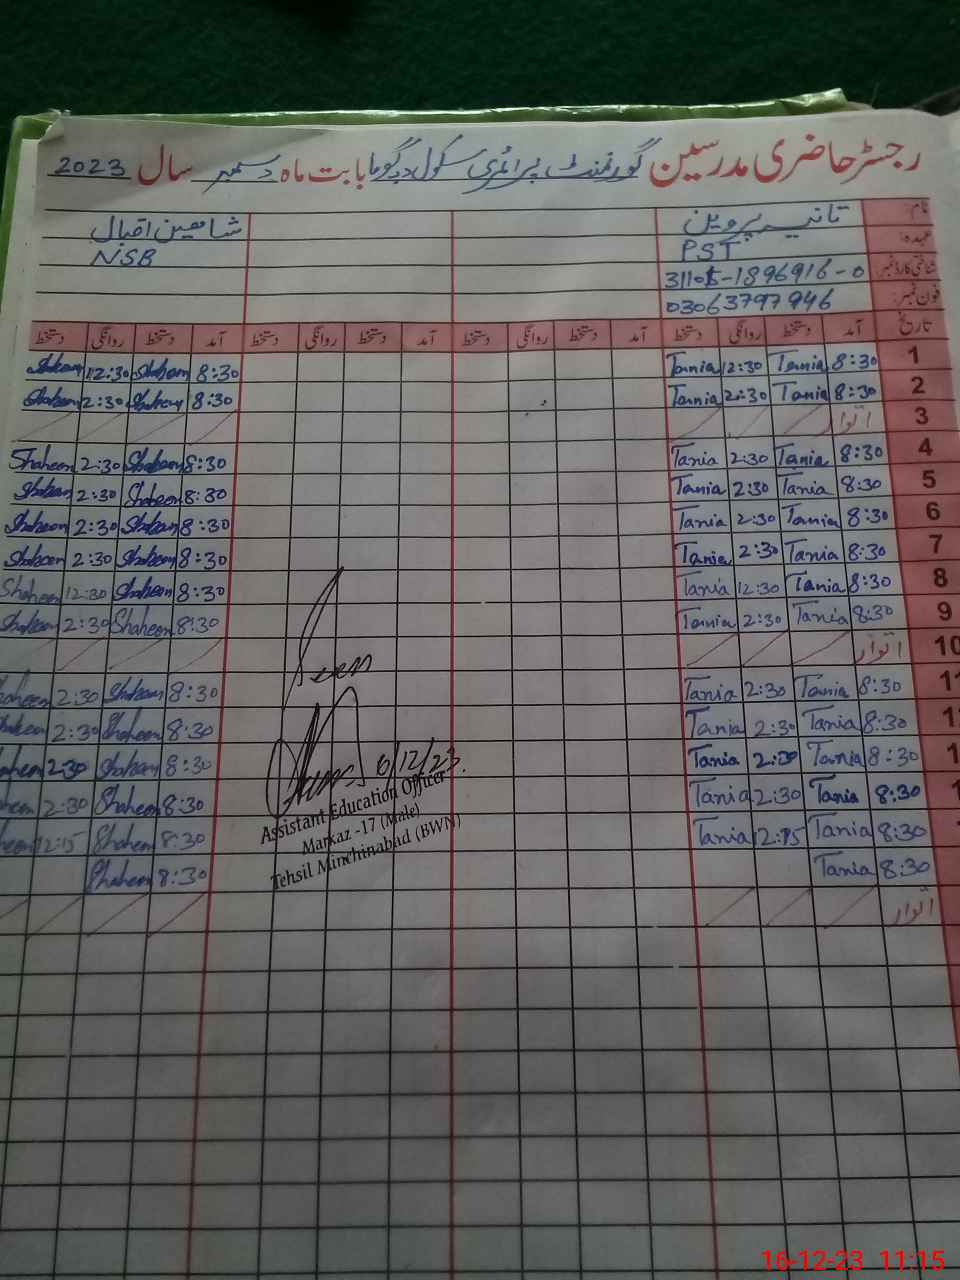 رجسٹر حاضری مدرسین گورنمنٹ پرائمری سکول بابت ماہ دسمبر سال 2023
نام: تانیہ پروین شاھین اقبال
عہدہ: PST NSB
شناختی کارڈ نمبر 31105-1896916-0
فون نمبر: 03063797946
تاریخ آمد دستخط روانگی دستخط آمد دستخط روانگی دستخط آمد دستخط روانگی دستخط آمد دستخط روانگی دستخط
1 8:30 Tania 12:30 Tania 8:30 Shaheen 12:30 Shaheen
2 8:30 Tania 2:30 Tania 8:30 Shaheen 2:30 Shaheen
3 اتوار
4 8:30 Tania 2:30 Tania 8:30 Shaheen 2:30 Shaheen
5 8:30 Tania 2:30 Tania 8:30 Shaheen 2:30 Shaheen
6 8:30 Tania 2:30 Tania 8:30 Shaheen 2:30 Shaheen
7 8:30 Tania 2:30 Tania 8:30 Shaheen 2:30 Shaheen
8 8:30 Tania 12:30 Tania 8:30 Shaheen 12:30 Shaheen
9 8:30 Tania 2:30 Tania 8:30 Shaheen 2:30 Shaheen
10 اتوار
8:30 Tania 2:30 Tania 8:30 Shaheen 2:30
8:30 Tania 2:30 Tania 8:30 Shaheen 2:30
8:30 Tania 2:30 Tania 8:30 Shaheen 2:30
8:30 Tania 2:30 Tania 8:30 Shaheen 2:30
8:30 Tania 12:15 Tania 8:30 Shaheen 12:15
8:30 Tania 8:30 Shaheen
اتوار
Seen
6/12/23.
Assistant Education Officer
Markaz -17 (Male)
Tehsil Minchinabad (BWN)
16-12-23 11:15